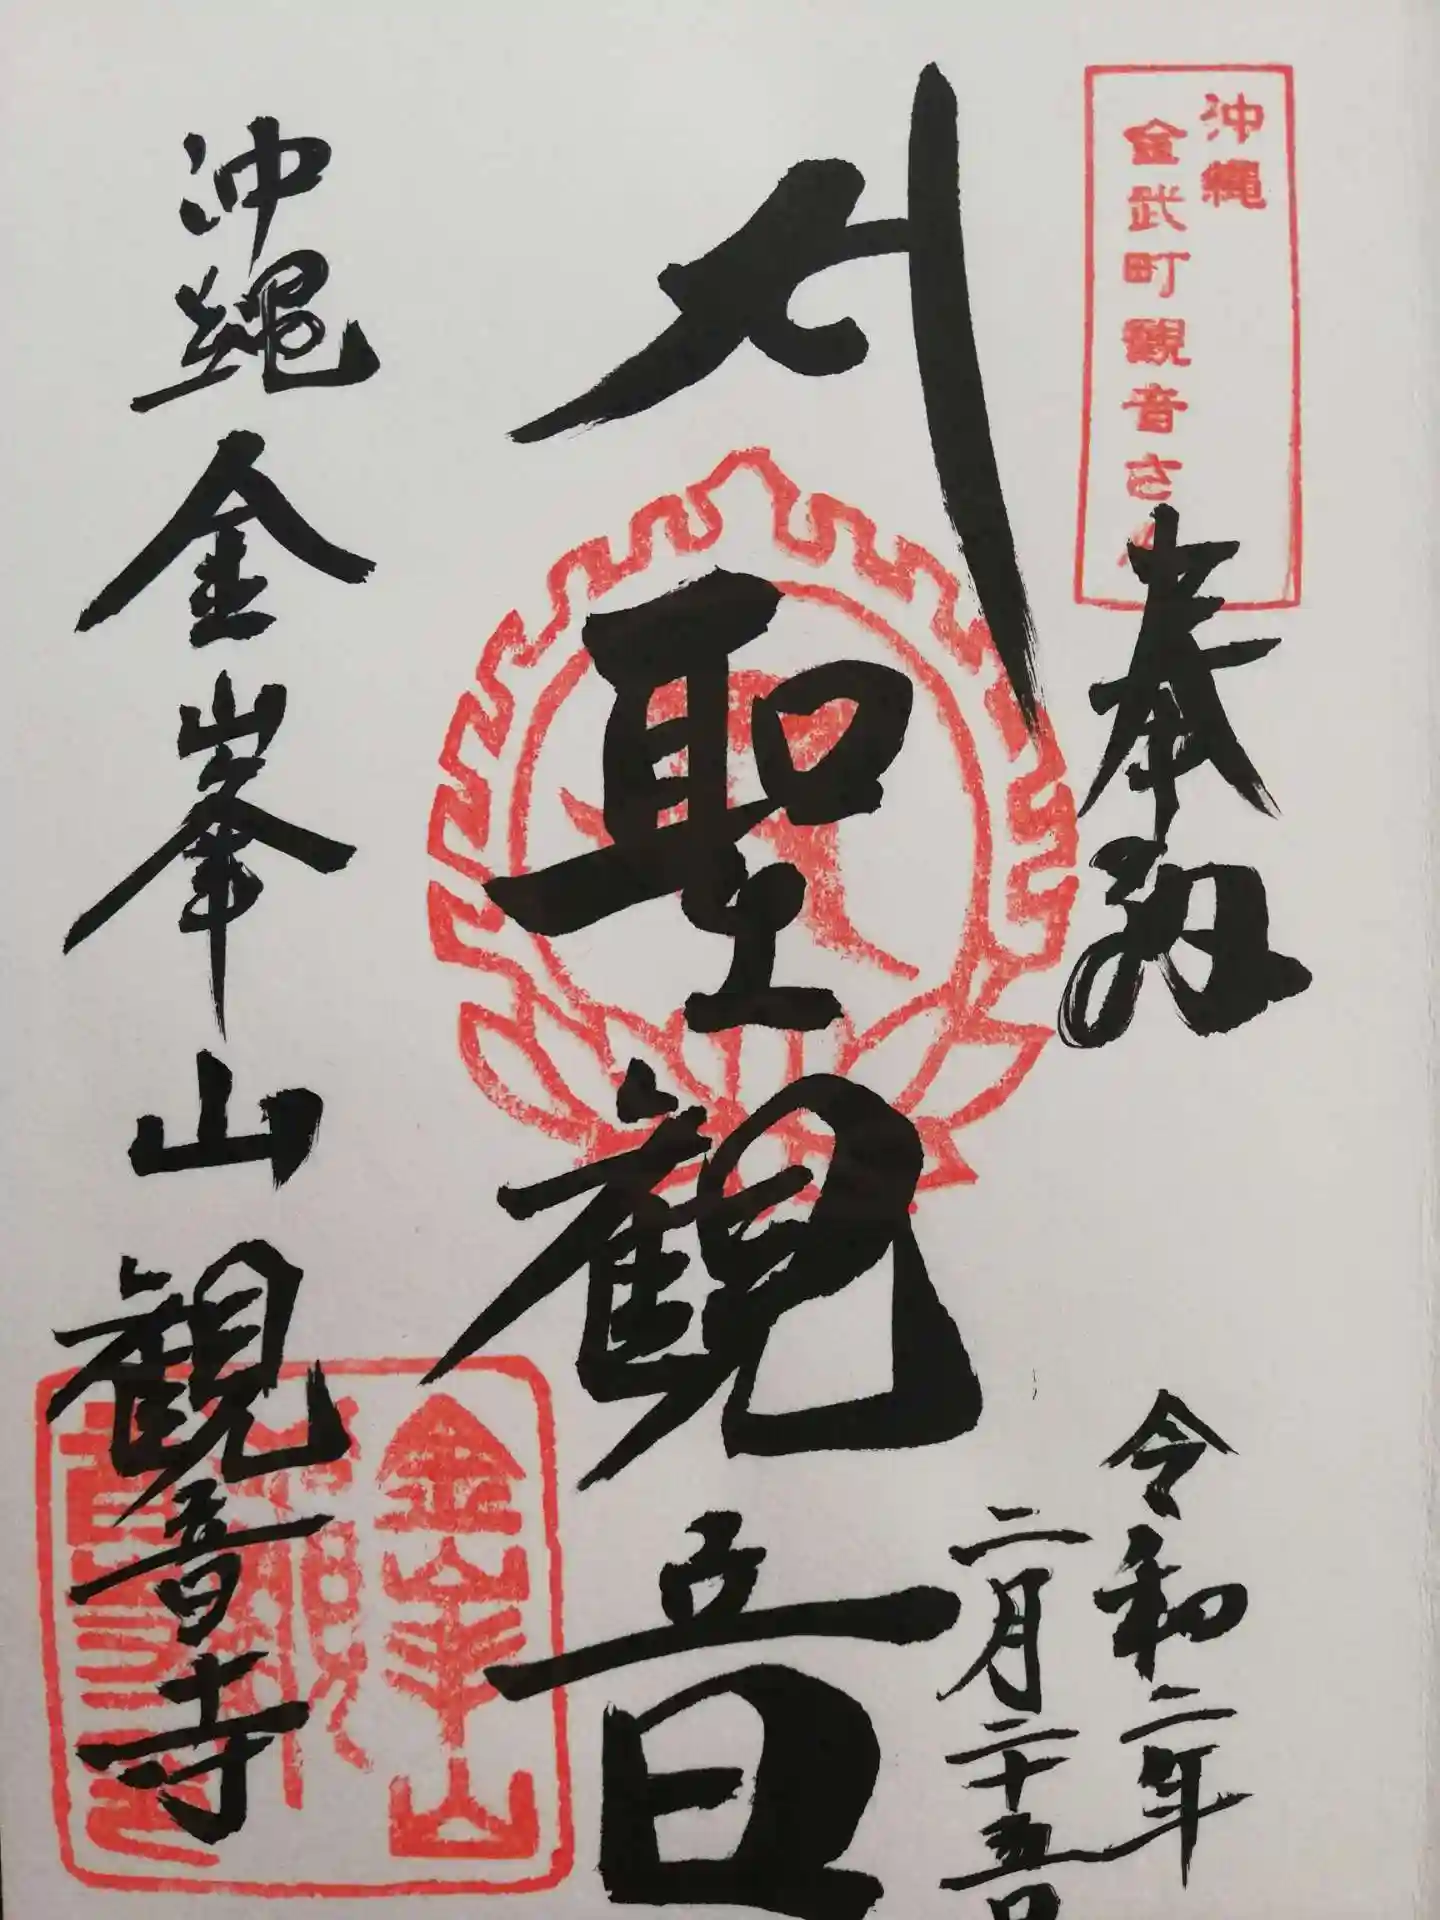 沖縄
金武町観音さん
奉納
令和二年
二月二十五日
サ
聖観音
沖縄金峯山観音寺
金峯山